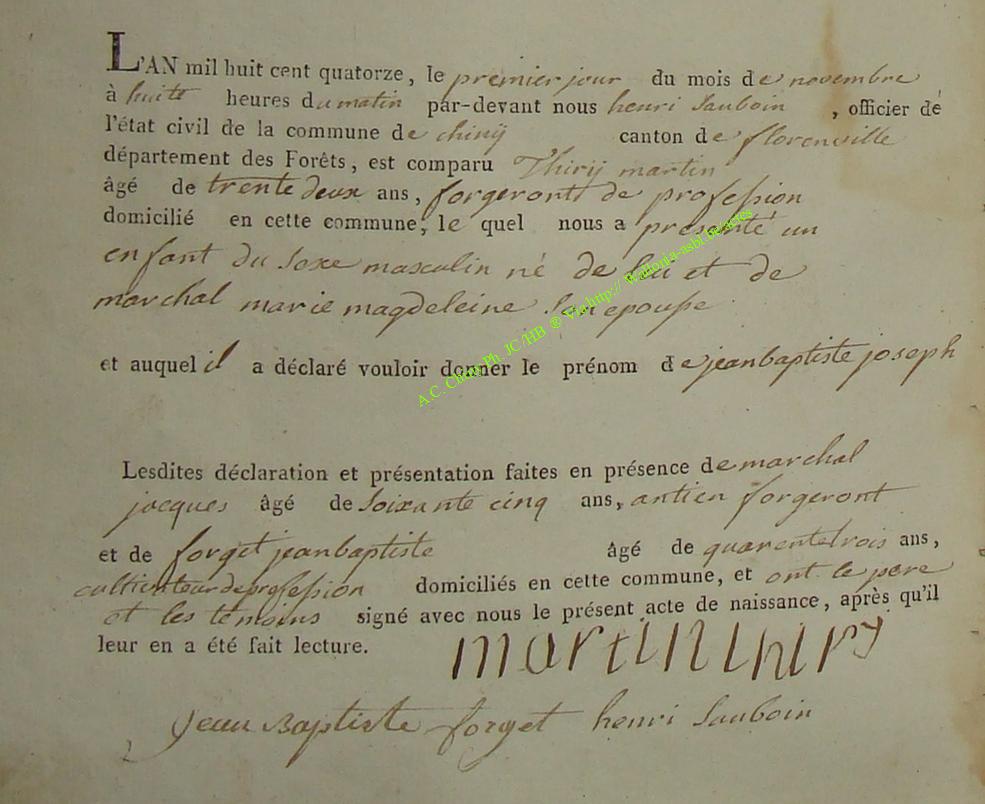 L'AN mil huit cent quatorze, le premier jour du mois de novembre
à huite heures du matin par-devant nous henri Sauboin , officier de
l'état civil de la commune de chinÿ canton de florenville
département des Forêts, est comparu Thirÿ martin
âgé de trente deux ans, forgeront de profession
domicilié en cette commune, le quel nous a présenté un
enfant du sexe masculin né de lui et de
marchal marie magdeleine son epouse
et auquel il a déclaré vouloir donner le prénom de jeanbaptiste joseph
Lesdites déclaration et présentation faites en présence de marchal
jacques âgé de Soixante cinq ans, antien forgeront
et de forget jeanbaptiste âgé de quarentetrois ans,
cultivateur de profession domiciliés en cette commune, et ont le pere
et les témoins signé avec nous le présent acte de naissance, après qu'il
leur en a été fait lecture.
martin thiry
Jean Baptiste forget henri Sauboin